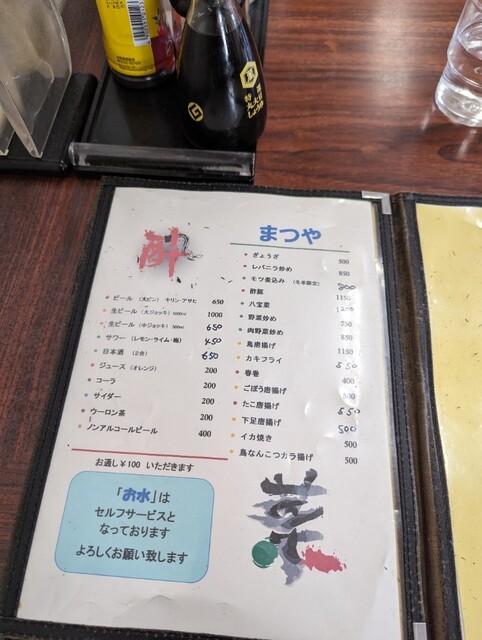 特選
丸大豆
しょうゆ
酔
まつや
ビール (大ビン) キリン・アサヒ 650
生ビール (大ジョッキ) 1000
生ビール (中ジョッキ) 500ml 650
サワー (レモン・ライム・梅) 450
日本酒 (2合) 650
ジュース (オレンジ) 200
コーラ 200
サイダー 200
ウーロン茶 200
ノンアルコールビール 400
お通し¥100 いただきます
ぎょうざ 500
レバニラ炒め 850
モツ煮込み (冬季限定) 900
酢豚 1150
八宝菜
野菜炒め 750
肉野菜炒め 850
鳥唐揚げ 1150
カキフライ 550
春巻 400
ごぼう唐揚げ
たこ唐揚げ 550
下足唐揚げ 500
イカ焼き 500
鳥なんこつカラ揚げ 500
「お水」は
セルフサービスと
なっております
よろしくお願い致します